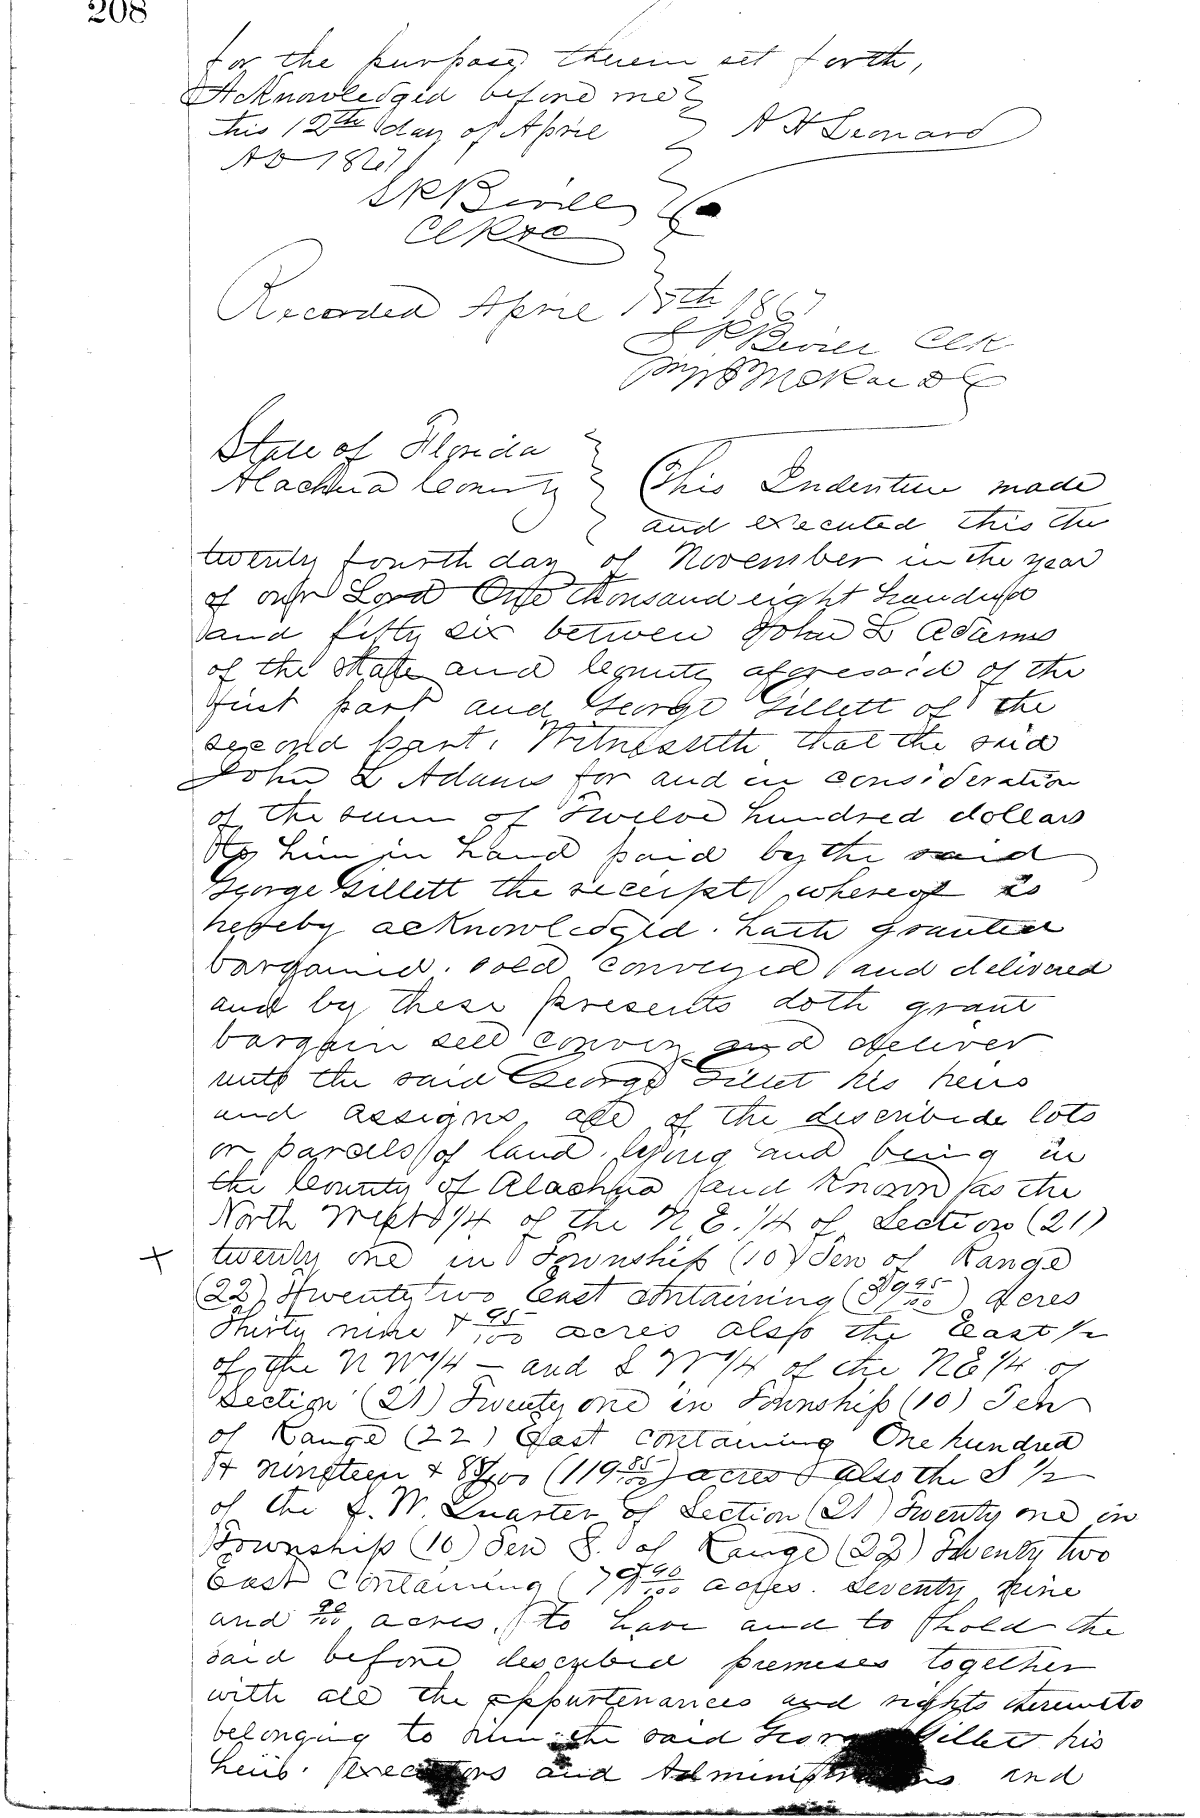 208
for the purposes therein set forth,
Acknowledged before me
this 12th day of April A H Leonard
AD 1867
S K Bevill
Clk
Recorded April 15th 1867
Bevill Clk
McRae D C
State of Florida
Alachua County This Indenture made
and executed this the
twenty fourth day of November in the year
of our Lord One thousand eight hundred
and fifty six between John L Adams
of the State and County aforesaid of the
first part and George Gillett of the
second part. Witnesseth that the said
John L Adams for and in consideration
of the sum of Twelve hundred dollars
to him in hand paid by the said
George Gillett the receipt whereof is
hereby acknowledged. hath granted
bargained. sold conveyed and delivered
and by these presents doth grant
bargain sell convey and deliver
unto the said George Gillet his heirs
and assigns all of the describide lots
or parcels of land. lying and being in
the County of Alachua and Known as the
North West 1/4 of the N. E. 1/4 of Section (21)
+ twenty one in Township (10) Ten of Range
(22) twenty two East containing (39 95/100) Acres
Thirty nine & 95/100 acres also the East 1/2
of the N W 1/4 – and S W 1/4 of the N E 1/4 of
Section (21) Twenty one in Township (10) Ten
of Range (22) East containing One hundred
& nineteen & 85/100 (119 85/100) acres & also the S 1/2
of the S. W. Quarter of Section (21) Twenty one in
Township (10) Ten S. of Range (22) Twenty two
East containing (79 90/100 acres. Seventy nine
and 90/100 acres. to have and to hold the
said before described premises together
with all the appurtenances and rights thereunto
belonging to him the said George Gillett his
heirs. Executors and Administrators and